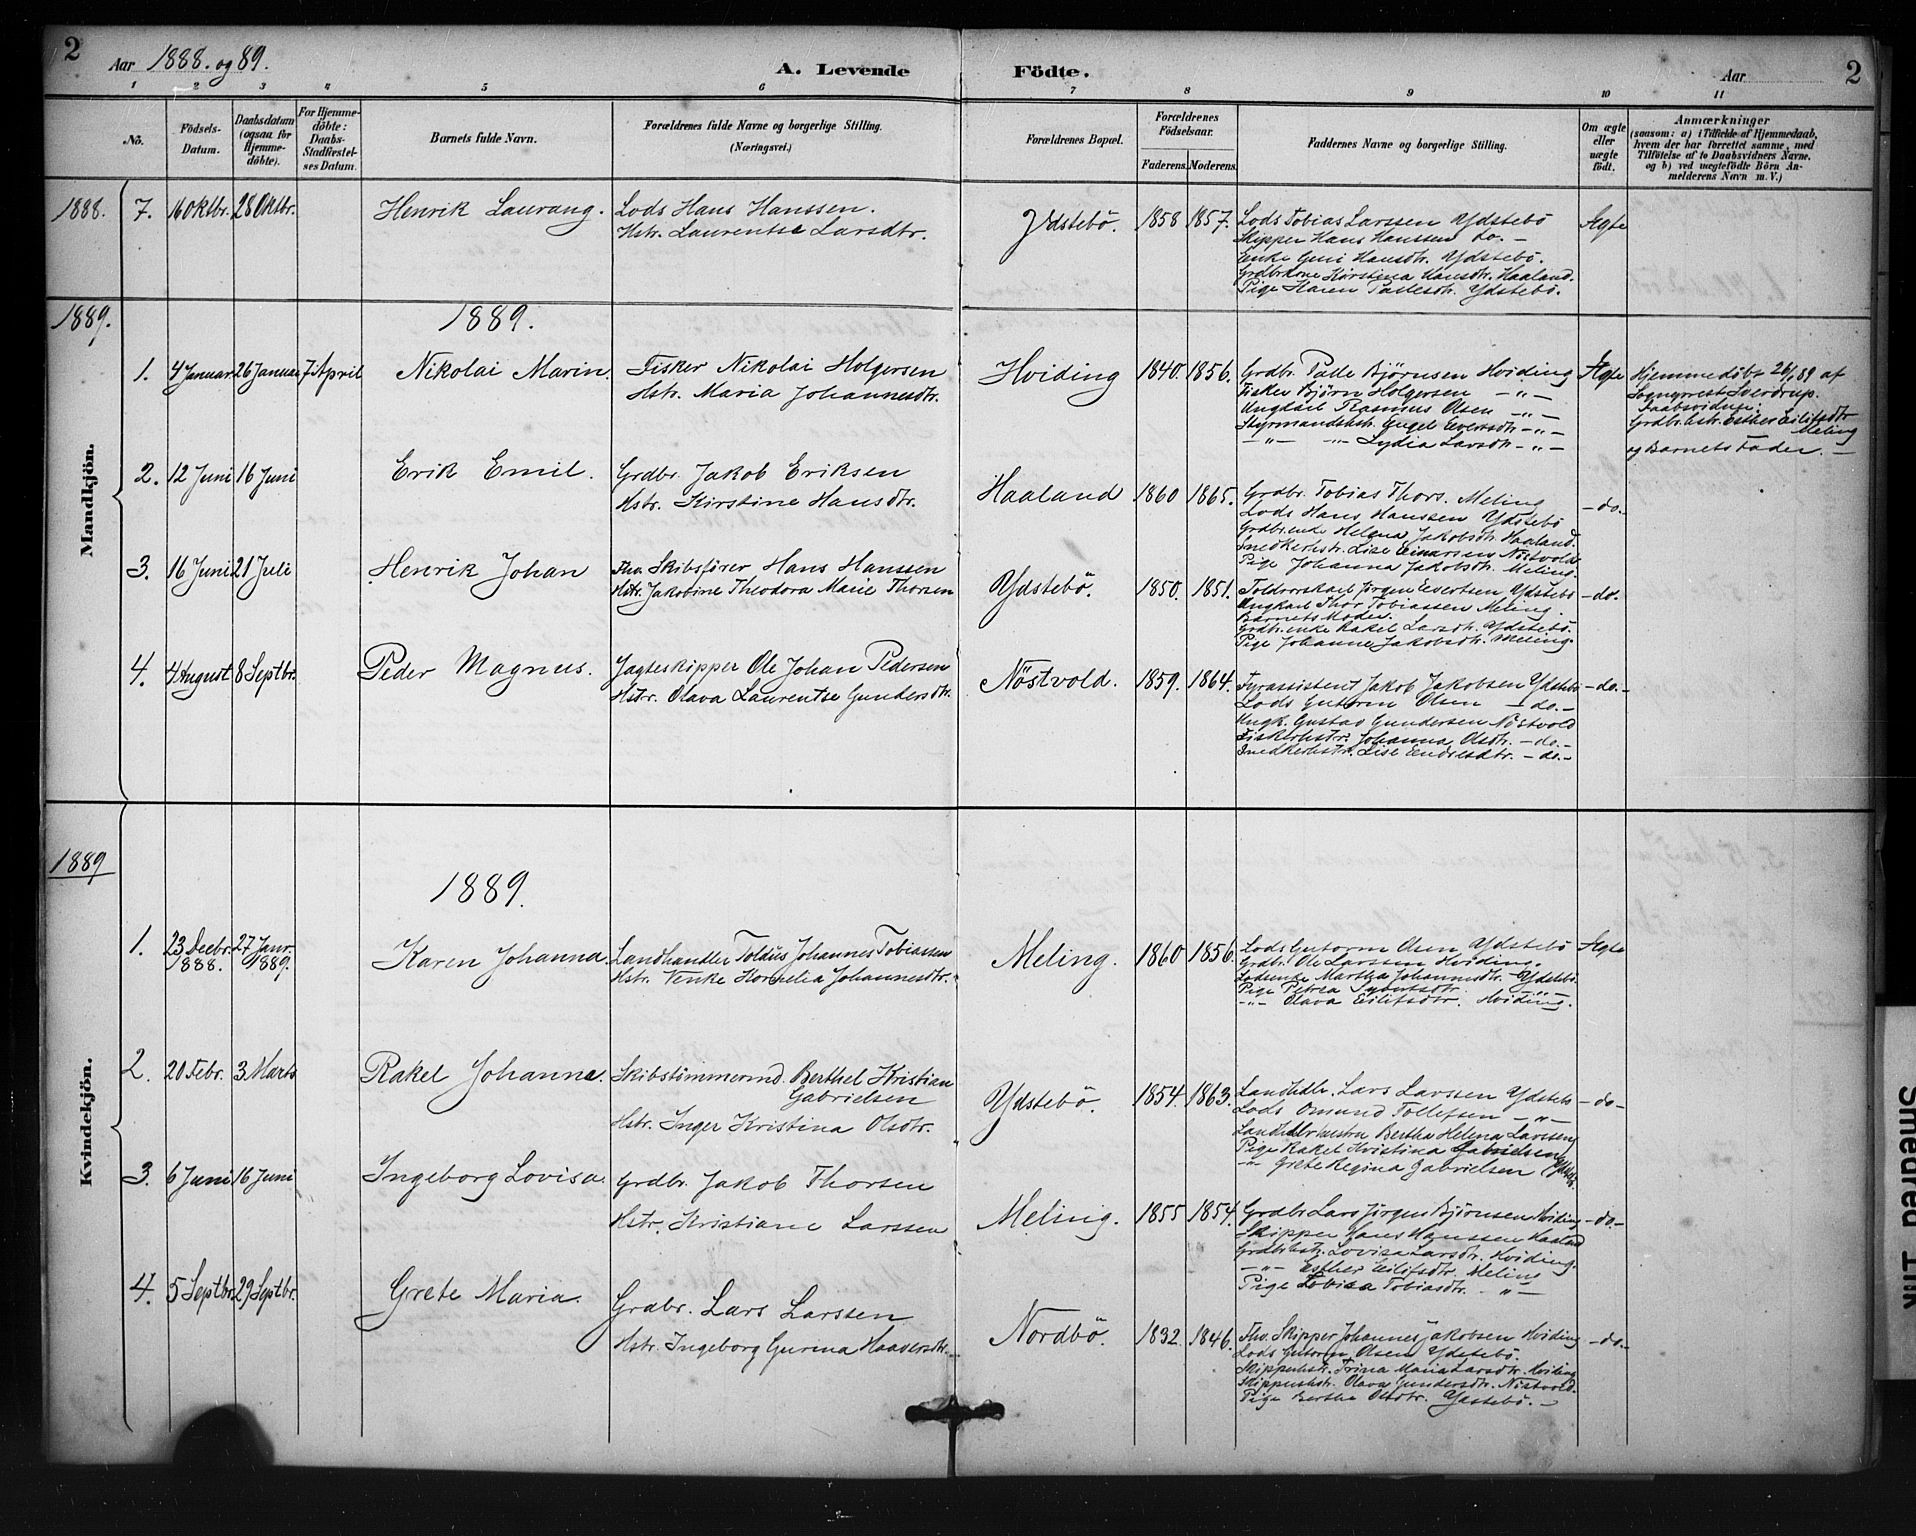 2
Aar 1888. og 89.
A. Levende Födte.
Aar
2
1 2 3 4 5 6 7 8 9 10 11
No.
Födsels-Datum.
Daabsdatum (ogsaa for Hjemme-döbte).
For Hjemme-döbte: Daabs-Stadfæstel-ses Datum.
Barnets fulde Navn.
Forældrenes fulde Navne og borgerlige Stilling. (Næringsvei.)
Forældrenes Bopæl.
Forældrenes Födselsaar.
Faderens. Moderens.
Faddernes Navne og borgerlige Stilling.
Om ægte eller uægte födt.
Anmærkninger
(saasom: a) i Tilfælde af Hjemmedaab,
hvem der har forrettet samme, med
Tilföielse af to Daabsvidners Navne,
og b) ved uægtefödte Börn An-
melderens Navn m. V.)
1888. 7. 16 Oktbr. 28 Oktbr. Henrik Laurang. Lods Hans Hanssen.
Hstr. Laurentse Larsdtr.
Ydstebö. 1858 1857. Lods Tobias Larssen Ydstebö Ægte
Skipper Hans Hanssen do. -
Enke Guri Hansdtr. Ydstebö.
Grdbrkone Kirstina Hansdtr. Haaland.
Pige Karen Pallesdtr. Ydstebö.
1889.
1889.
Mandkjön.
1. 4 Januar 26 Januar 7 April Nikolai Marin. Fisker Nikolai Holgersen
Hstr. Maria Johannesdtr.
Hviding 1840. 1856. Grdbr. Palle Björnsen Hviding Ægte
Fisker Björn Holgersen - " -
Ungkarl Rasmus Olsen - " -
Styrmandshstr. Engel Evertsdtr - " -
- " - - " - Lydia Larsdtr - " -
Hjemmedöbt 26/1 89 af
Sogneprest Sverdrup.
Daabsvidner:
Grdbr.hstr. Esther Eilifsdtr
Meling
og Barnets Fader. -
2. 12 Juni 16 Juni Erik Emil. Grdbr. Jakob Eriksen
Hstr. Kirstine Hansdtr.
Haaland 1860 1865. Grdbr. Tobias Thors. Meling - do. -
Lods Hans Hanssen Ydstebö
Grdbr.enke Helena Jakobsdtr. Haaland.
Snedkerhstr. Lise Einarsen Nöstvold
Pige Johanna Jakobsdtr. Meling.
3. 16 Juni 21 Juli Henrik Johan Fhv. Skibsförer Hans Hanssen
Hstr. Jakobine Theodora Marie Thorsen
Ydstebö. 1850. 1851. Toldrorskarl Jörgen Evertsen Ydstebö - do. -
Ungkarl Thor Tobiassen Meling.
Barnets Moder.
Grdbr.enke Rakel Larsdtr. Ydstebö.
Pige Johanne Jakobsdtr. Meling.
4. 4 August 8 Septbr. Peder Magnus. Jagteskipper Ole Johan Pedersen
Hstr. Olava Laurentse Gundersdtr.
Nöstvold. 1859. 1864. Fyrassistent Jakob Jakobsen Ydstebö - do. -
Lods Gutorm Olsen - do. -
Ungk. Gustav Gundersen Nöstvold
Fiskerhstr. Johanna Olsdtr. - do. -
Snedkerhstr. Lise Endresdtr. - do. -
1889
1889.
Kvindekjön.
1. 23 Decbr. 1888. 27 Janr. 1889. Karen Johanna. Landhandler Toldüs Johannes Tobiassen
Hstr. Tenke Kornelia Johannesdtr.
Meling. 1860 1856. Lods Gutorm Olsen Ydstebö Ægte
Grdbr. Ole Larssen Hviding.
Lodsenke Martha Johannesdtr. Ydstebö.
Pige Petrea - " -
- " - Olava Eilifsdtr. Hviding.
2. 20 Febr. 3 Marts Rakel Johanne. Skibstömmermd. Berthel Kristian
Gabrielsen
Hstr. Inger Kristina Olsdtr.
Ydstebö. 1854. 1863. Landhdlr. Lars Larssen Ydstebö - do -
Lods Omund Tollefsen - " -
Landhdlrhustru Bertha Helena Larssen
Pige Rakel Kristina Gabrielsen
- " - Grete Regina Gabrielsen Ydstebö.
3. 6 Juni 16 Juni Ingeborg Lovisa. Grdbr. Jakob Thorsen
Hstr. Kristiane Larssen
Meling. 1855 1854. Grdbr Lars Jörgen Björnsen Hviding - do. -
Skipper Hans Hanssen Haaland
Grdbr.hstr. Lovisa Larsdtr. Hviding.
- " - Esther Eilifsdtr. Meling
Pige Lovisa Tobiasdtr. - " -
4. 5 Septbr. 29 Septbr. Grete Maria. Grdbr. Lars Larssen
Hstr. Ingeborg Gurina Haaversdtr.
Nordbö. 1832. 1846. Fhv. Skipper Johannes Jakobsen Hviding - do. -
Lods Gutorm Olsen Ydstebö.
Skipperhstr. Trina Maria Larsdtr. Hviding
Skipperhstr. Olava Gundersdtr. Nöstvold.
Pige Berthe Olsdtr. Ydstebö. -